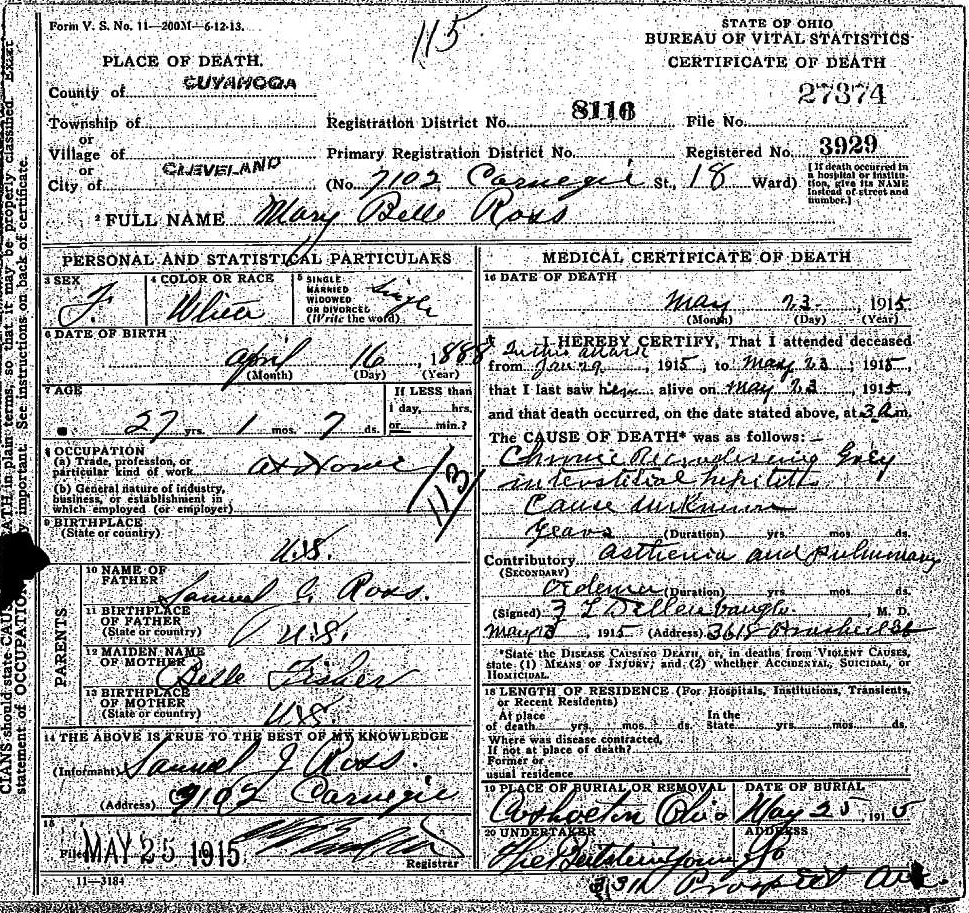 Form V. S. No. 11—200M—6-12-13.
115
STATE OF OHIO
BUREAU OF VITAL STATISTICS
CERTIFICATE OF DEATH
PLACE OF DEATH.
County of CUYAHOGA
27374
Township of
Registration District No. 8116
File No.
or
Village of
Primary Registration District No.
Registered No. 3929
or
City of CLEVELAND
(No. 7102 Carnegie St., 18 Ward)
(If death occurred in
a hospital or institu-
tion, give its NAME
instead of street and
number.)
2 FULL NAME Mary Belle Ross
PERSONAL AND STATISTICAL PARTICULARS
3 SEX
F.
4 COLOR OR RACE
White
5 SINGLE
MARRIED
WIDOWED
OR DIVORCED
(Write the word)
Single
6 DATE OF BIRTH
April 16 1888
(Month) (Day) (Year)
7 AGE
27 yrs. 1 mos. 7 ds.
If LESS than
1 day, hrs.
or min.?
8 OCCUPATION
(a) Trade, profession, or
particular kind of work
at Home
(b) General nature of industry,
business, or establishment in
which employed (or employer)
113
9 BIRTHPLACE
(State or country)
U.S.
PARENTS
10 NAME OF
FATHER
Samuel Ross.
11 BIRTHPLACE
OF FATHER
(State or country)
U.S.
12 MAIDEN NAME
OF MOTHER
Belle Fisher
13 BIRTHPLACE
OF MOTHER
(State or country)
U.S.
14 THE ABOVE IS TRUE TO THE BEST OF MY KNOWLEDGE
(Informant) Samuel J Ross.
(Address) 7102 Carnegie
15
Filed MAY 25 1915
Registrar
11—3184
MEDICAL CERTIFICATE OF DEATH
16 DATE OF DEATH
May 23 1915
(Month) (Day) (Year)
I HEREBY CERTIFY, That I attended deceased
from Jan 29, 1915, to May 23, 1915,
that I last saw him alive on May 23, 1915,
and that death occurred, on the date stated above, at 3 a m.
The CAUSE OF DEATH* was as follows:
Chronic
interstitial
Cause unknown
Years (Duration) yrs. mos. ds.
Contributory asthenia and pulmonary
(SECONDARY)
oedema (Duration) yrs. mos. ds.
(Signed) F L Dellenbaugh M. D.
May 23 1915 (Address)
*State the DISEASE CAUSING DEATH, or, in deaths from VIOLENT CAUSES,
state (1) MEANS OF INJURY; and (2) whether ACCIDENTAL, SUICIDAL, or
HOMICIDAL.
18 LENGTH OF RESIDENCE (For Hospitals, Institutions, Transients,
or Recent Residents)
At place
of death yrs. mos. ds.
In the
State yrs. mos. ds.
Where was disease contracted,
If not at place of death?
Former or
usual residence
19 PLACE OF BURIAL OR REMOVAL
Coshocton Ohio
DATE OF BURIAL
May 25 1915
20 UNDERTAKER
The Co
ADDRESS
Prospect Ave.
CIANS should state CAUSE OF DEATH in plain terms, so that it may be properly classified. Exact
statement of OCCUPATION is very important. See instructions on back of certificate.